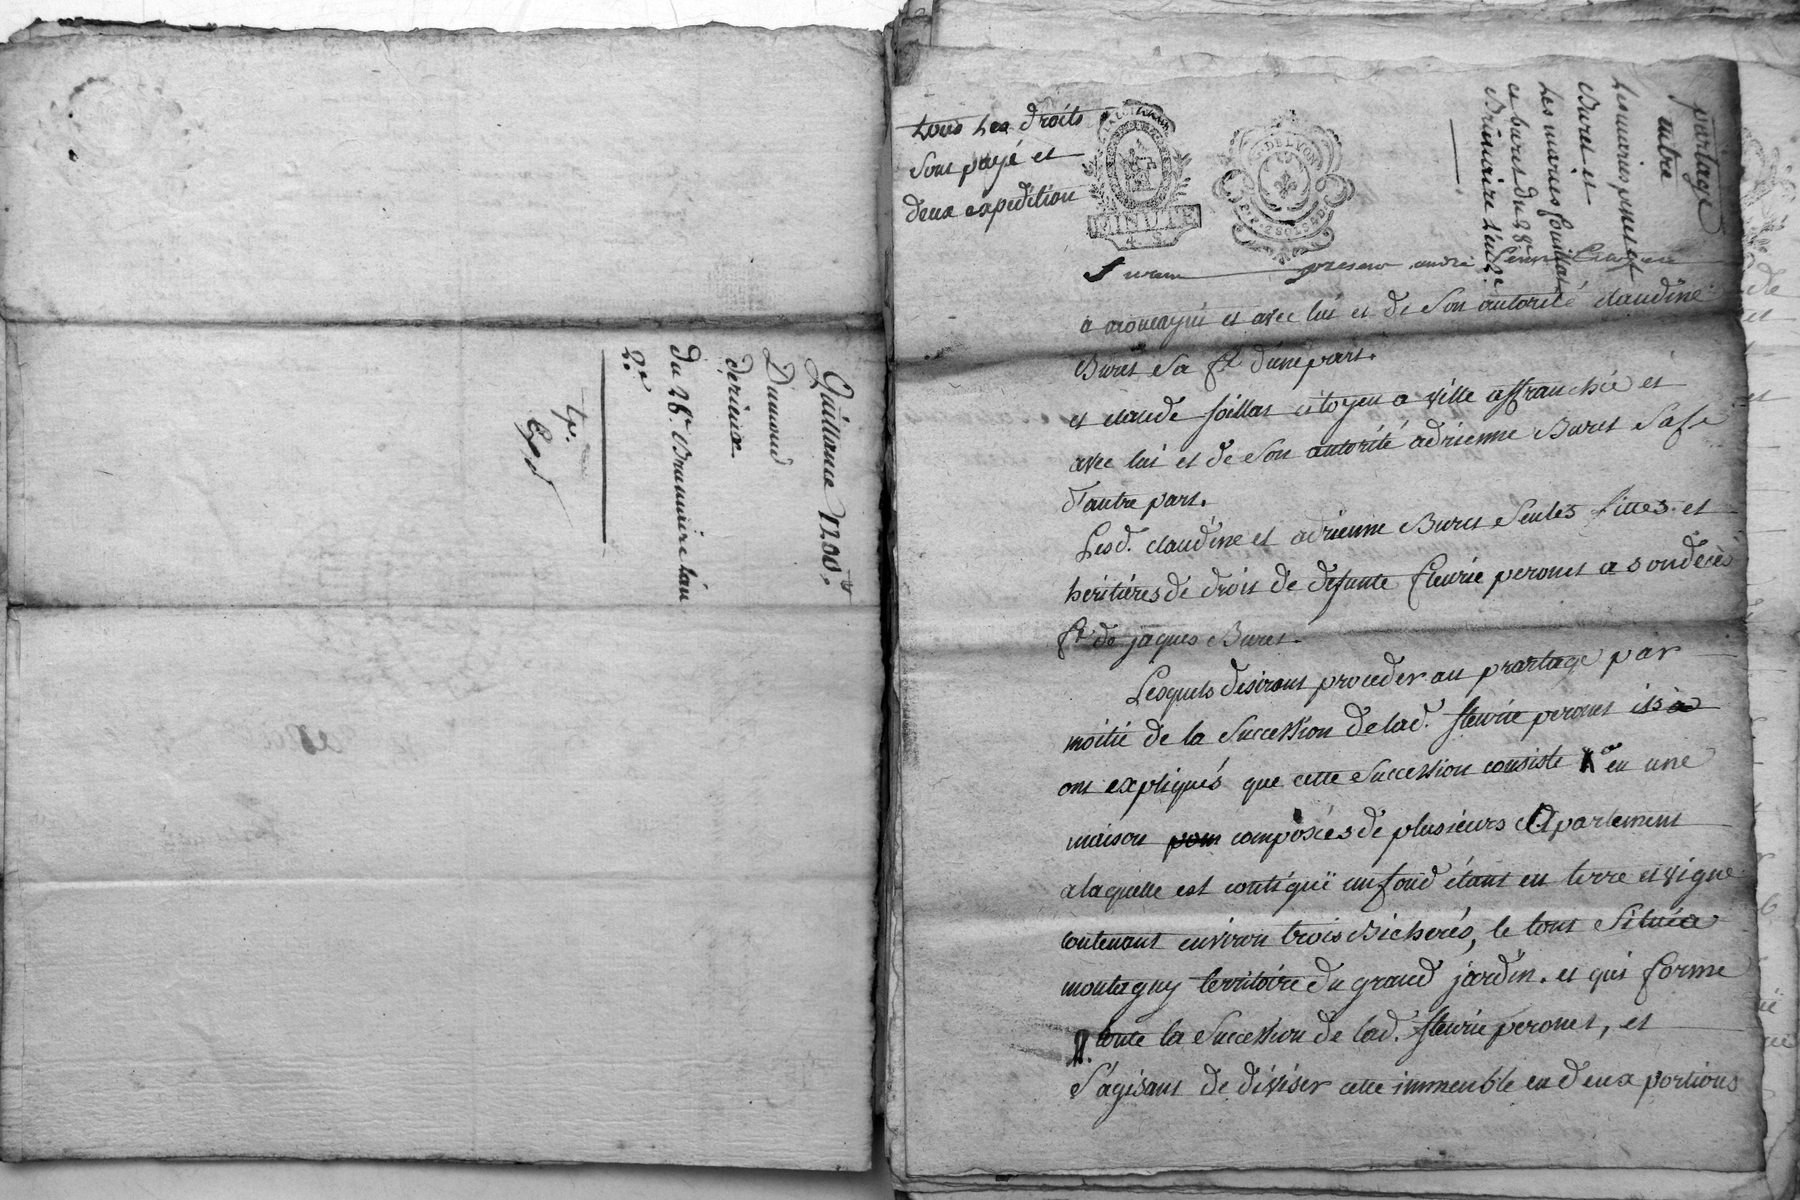 Quittance 1200.tt
Dumond
derieux
du 26e. Brumaire l'an
2e.
Exp.d
tous les droits
sont payé et
deux expedition
MINUTE
4 S
DE LYON
partage
entre
Les mariés peret et
Buret et
Les mariés foillat
et buret du 28e
Brumaire l'an 2e.
Furent present andré
a montagni et avec lui et de son autorité claudine
Buret sa fe d'une part.
et claude foillat citoyen a ville affranchie et
avec lui et de son autorité adrienne Buret sa fe
d'autre part.
Lesd. claudine et adrienne Buret seules filles et
heritières de droit de defunte fleurie peronet a son decès
fe de jaques Buret.
Lesquels desirant proceder au prartage par
moitié de la succession de lad. fleurie peronet ils a
ont expliqués que cette succession consiste 1° en une
maison pom composées de plusieurs Apartement
a laquelle est contiguë un fond étant en terre et vigne
contenant environ trois Bicherés, le tout située
montagny territoire du grand jardin. et qui forme
toute la succession de lad. fleurie peronet, et
S'agisant de diviser cette immeuble en deux portions